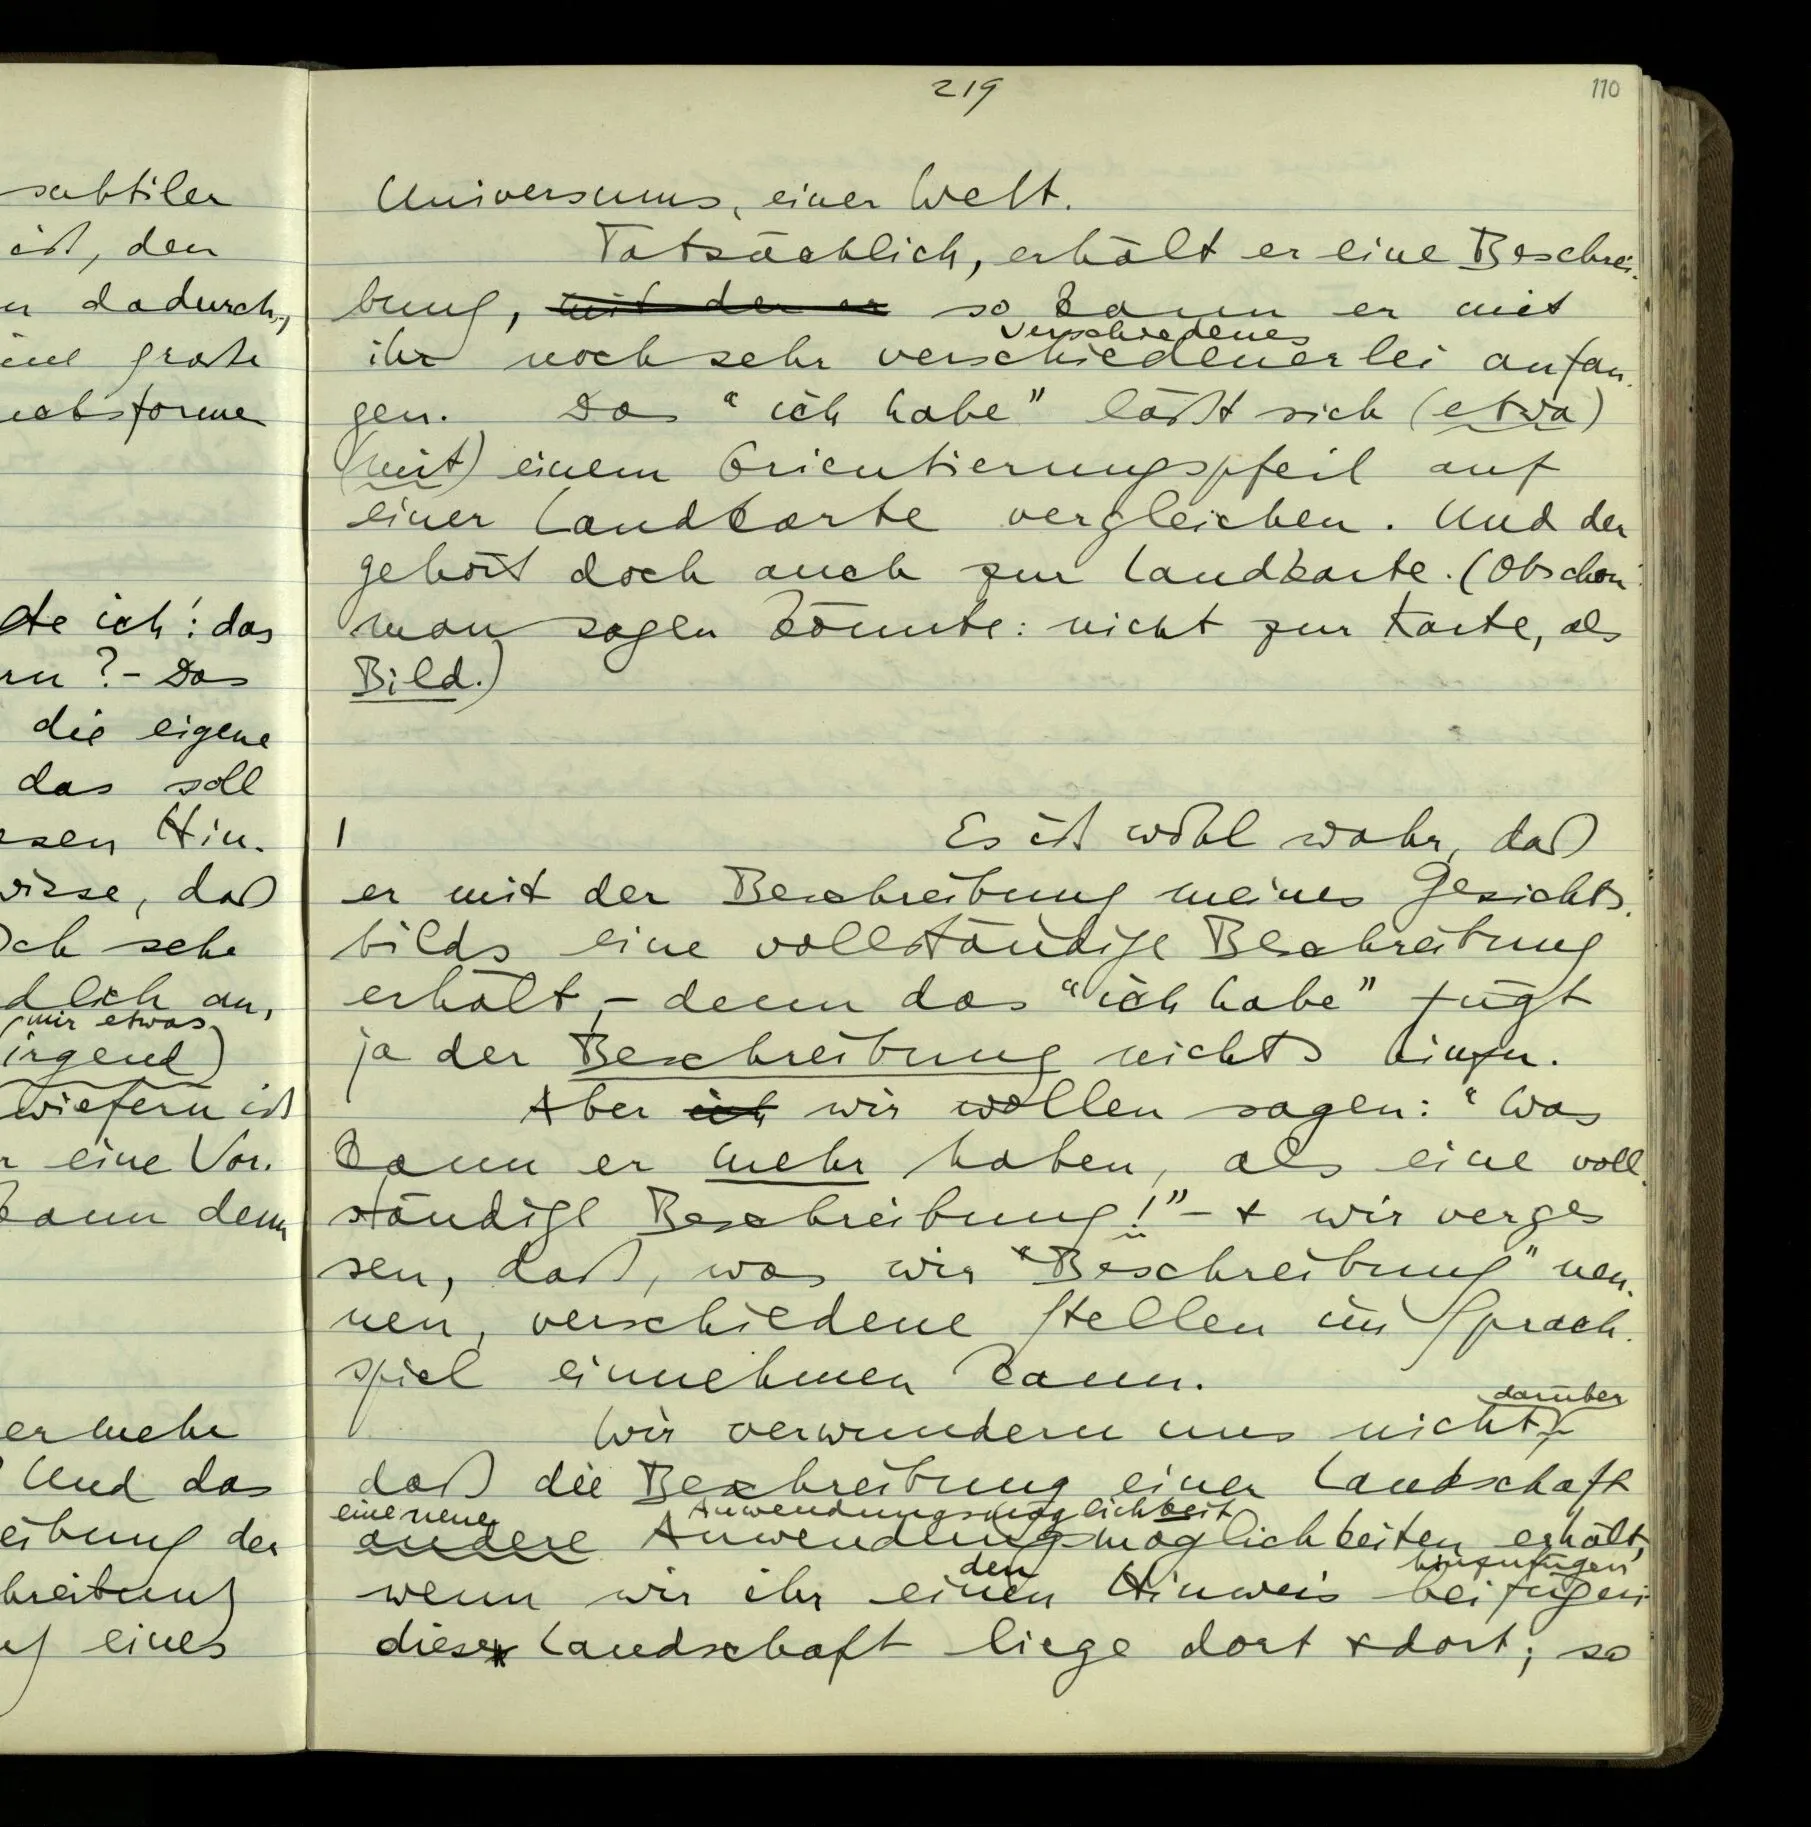 subtiler
ist, den
dadurch,
große
te ich: das
rn? – Das
die eigene
das soll
sen Hin-
wisse, daß
Ich sehe
dlich an,
mir etwas
(irgend)
wiefern ist
r eine Vor-
kann denn
er mehr
Und das
eibung der
hreibung
eines
219
110
Universums, einer Welt.
Tatsächlich, erhält er eine Beschrei-
bung, mit der er so kann er mit
verschiedenes
ihr noch sehr verschiedenerlei anfan-
gen. Das "ich habe" läßt sich (etwa)
(mit) einem Orientierungspfeil auf
einer Landkarte vergleichen. Und der
gehört doch auch zur Landkarte. (Obschon
man sagen könnte: nicht zur Karte, als
Bild.)
I Es ist wohl wahr, daß
er mit der Beschreibung meines Gesichts-
bilds eine vollständige Beschreibung
erhält, – denn das "ich habe" fügt
ja der Beschreibung nichts hinzu.
Aber ich wir wollen sagen: "Was
kann er mehr haben, als eine voll-
ständige Beschreibung!" – + wir verges
sen, daß, was wir "Beschreibung" nen-
nen, verschiedene Stellen im Sprach-
spiel einnehmen kann.
darüber
Wir verwundern uns nicht,
daß die Beschreibung einer Landschaft
eine neue Anwendungsmöglichkeit
andere Anwendungsmöglichkeiten erhält,
den hinzufügen
wenn wir ihr einen Hinweis beifügen:
diese Landschaft liege dort + dort; so